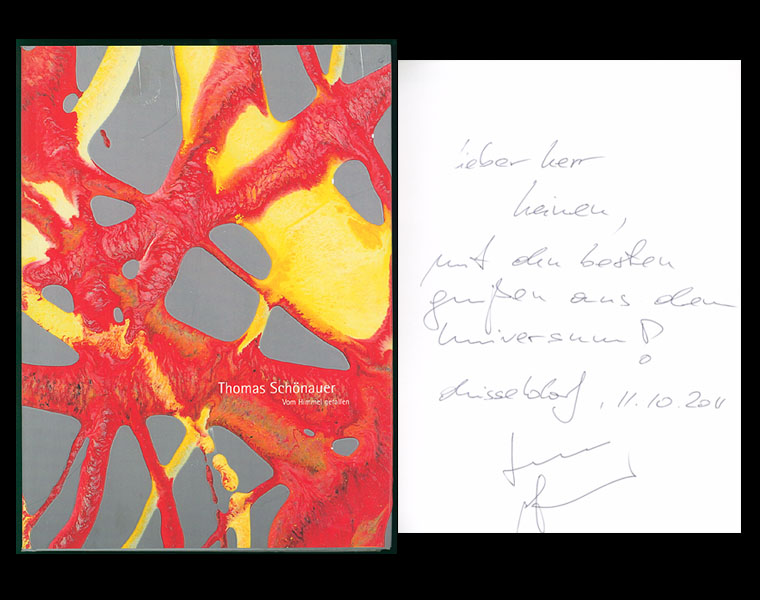 Thomas Schönauer
Vom Himmel gefallen
lieber herr
heinen,
mit den besten
grüßen aus dem
universum!
düsseldorf, 11.10.2011